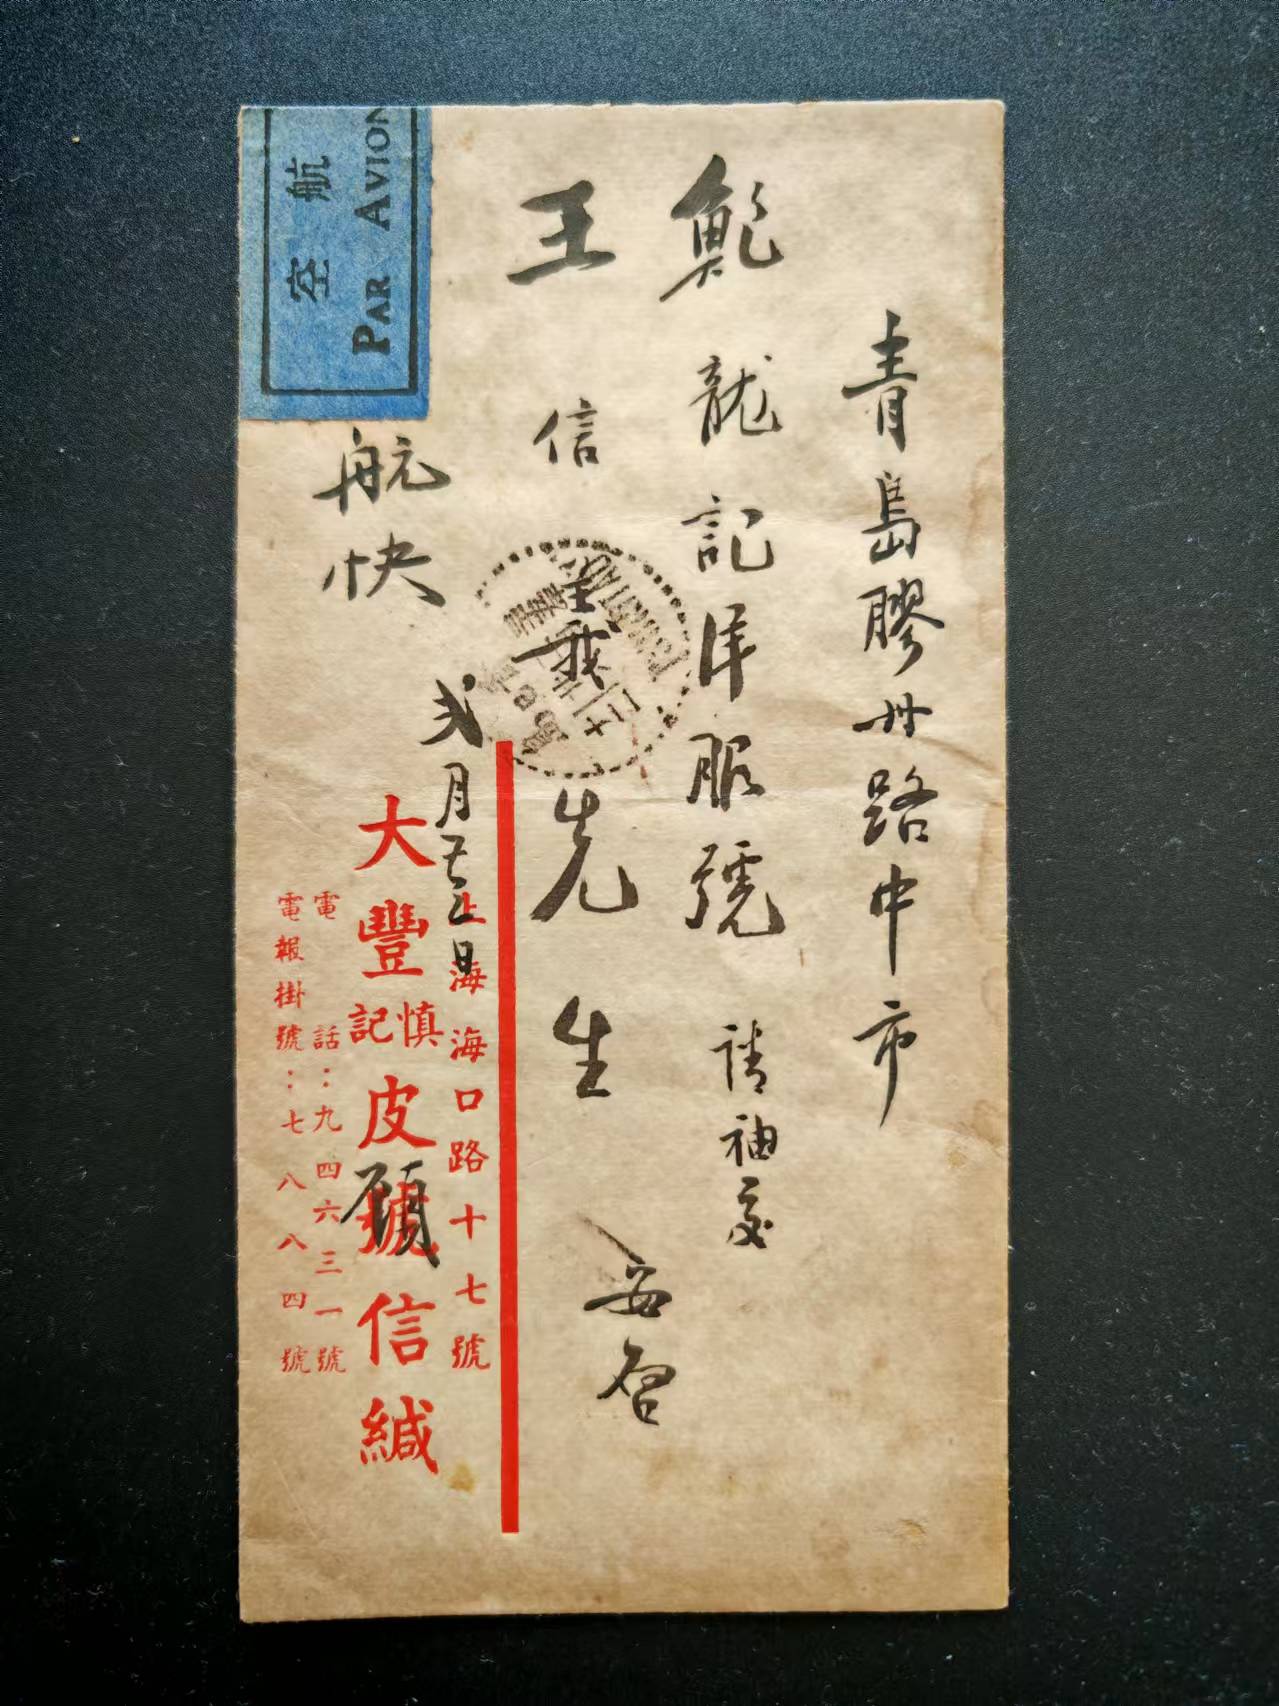 青島膠州路中市
鮑龍記洋服號 請袖交
王信義先生 安啓
航空
PAR AVION
航快
弍月廿三日
上海海口路十七號
大豐慎記皮號信緘
顧
電話：九四六三一號
電報掛號：七八八四號